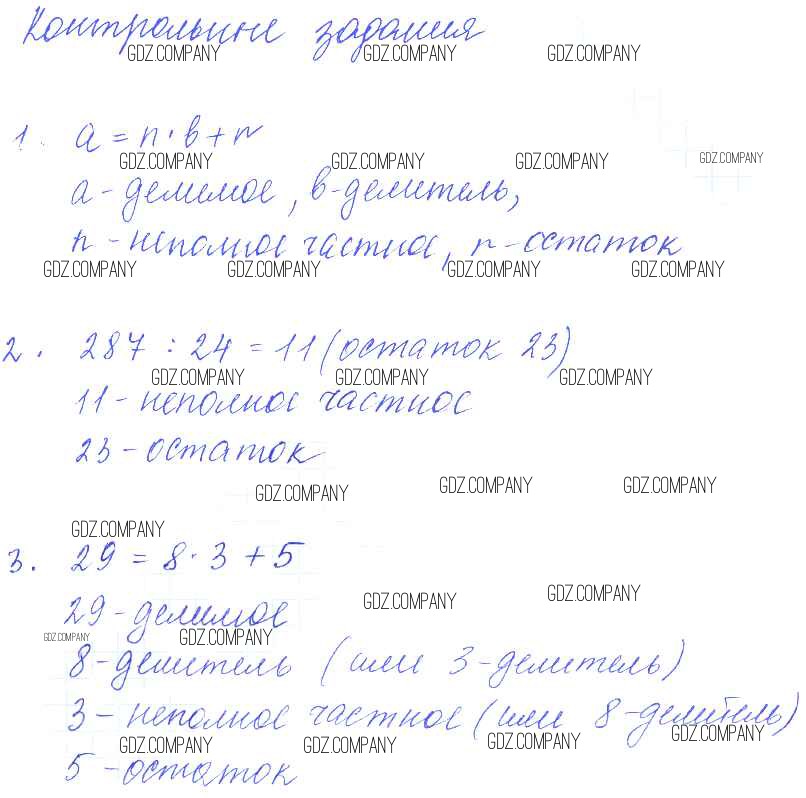 Контрольные задания
GDZ.COMPANY GDZ.COMPANY GDZ.COMPANY
1. a = n · в + r
GDZ.COMPANY GDZ.COMPANY GDZ.COMPANY GDZ.COMPANY
а - делимое, в - делитель,
n - неполное частное, r - остаток
GDZ.COMPANY GDZ.COMPANY GDZ.COMPANY GDZ.COMPANY
2. 287 : 24 = 11 (остаток 23)
GDZ.COMPANY GDZ.COMPANY GDZ.COMPANY
11 - неполное частное
23 - остаток
GDZ.COMPANY GDZ.COMPANY GDZ.COMPANY
GDZ.COMPANY
3. 29 = 8 · 3 + 5
GDZ.COMPANY GDZ.COMPANY
29 - делимое
GDZ.COMPANY GDZ.COMPANY
8 - делитель (или 3 - делитель)
3 - неполное частное (или 8 - делитель)
GDZ.COMPANY GDZ.COMPANY GDZ.COMPANY GDZ.COMPANY
5 - остаток